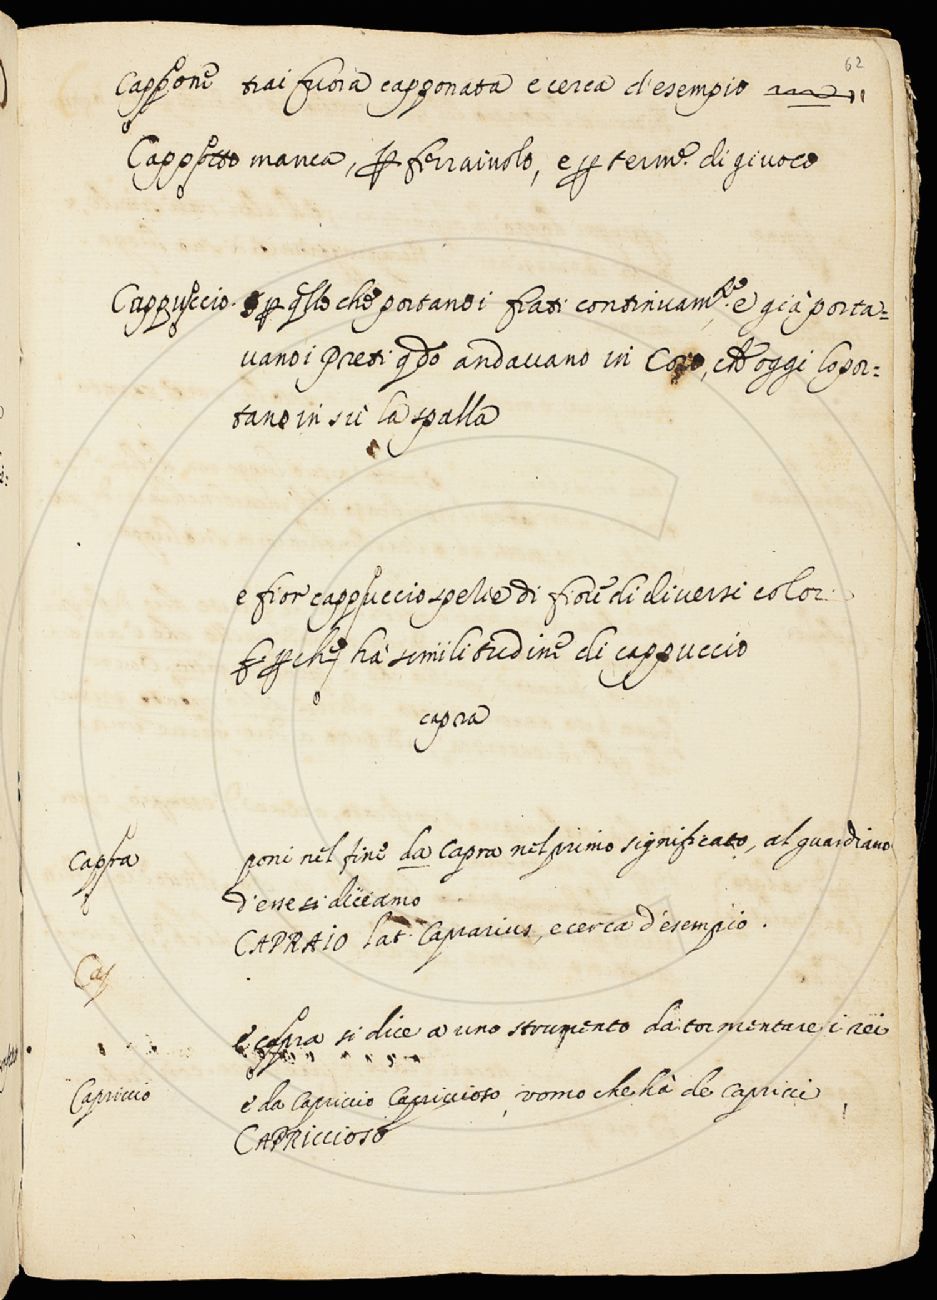 62
Cappone trai fuora capponata e cerca d'esempio
Cappotto manca, ꝑ ferraiuolo, e ꝑ term.e di giuoco
Cappuccio. ꝑ qllo che portano i frati continuam.te e già porta=
uano i Preti qdo andauano in Coro, che oggi lo por=
tano in sù la spalla
e fior cappuccio spetie di fiore di diuersi color
ꝑche hà similitudine di cappuccio
capra
Capra poni nel fine da Capra nel primo significato, al guardiano
d'esse si diciamo
CAPRAIO lat. Caprarius, e cerca d'esempio.
Cap
e capra si dice a uno strumento da tormentare i rei
Capriccio e da Capriccio Capriccioso, vomo che hà de Capricci
CAPRICCIOSO